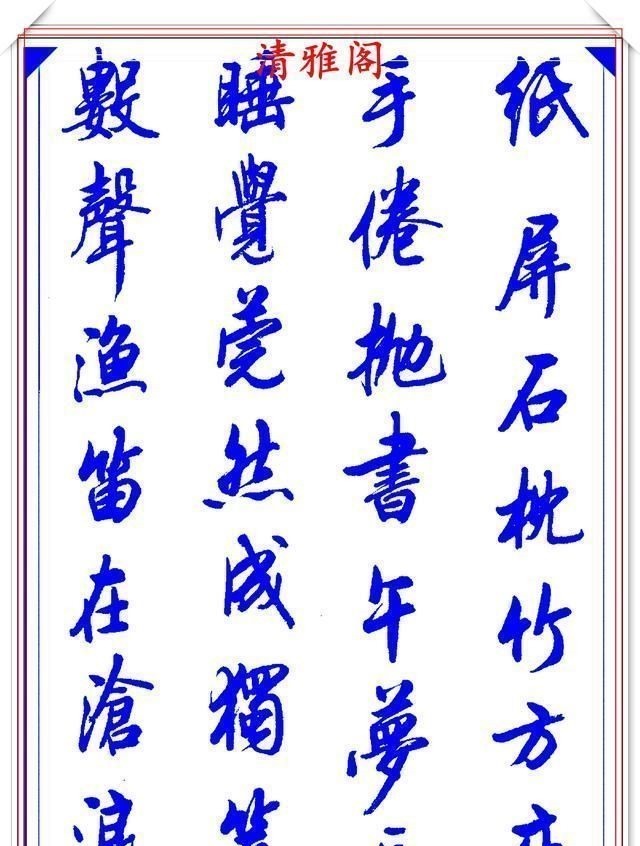 清雅阁
纸屏石枕竹方
手倦抛書午夢
睡覺莞然成獨笑
數聲漁笛在滄浪